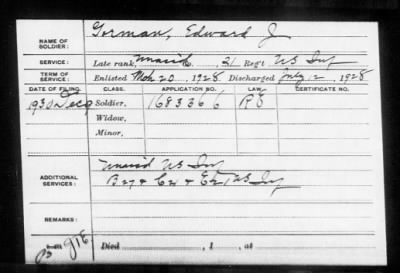 NAME OF SOLDIER: Gorman, Edward J
SERVICE: Late rank, 21 Reg't US Inf
TERM OF SERVICE: Enlisted Mch 20, 1928 Discharged July 12, 1928
DATE OF FILING. CLASS. APPLICATION NO. LAW. CERTIFICATE NO.
1930 Dec 9 Soldier. 1683366
Widow.
Minor.
ADDITIONAL SERVICES: Unas'd US Inf
US Inf
REMARKS:
Died , 1 , at